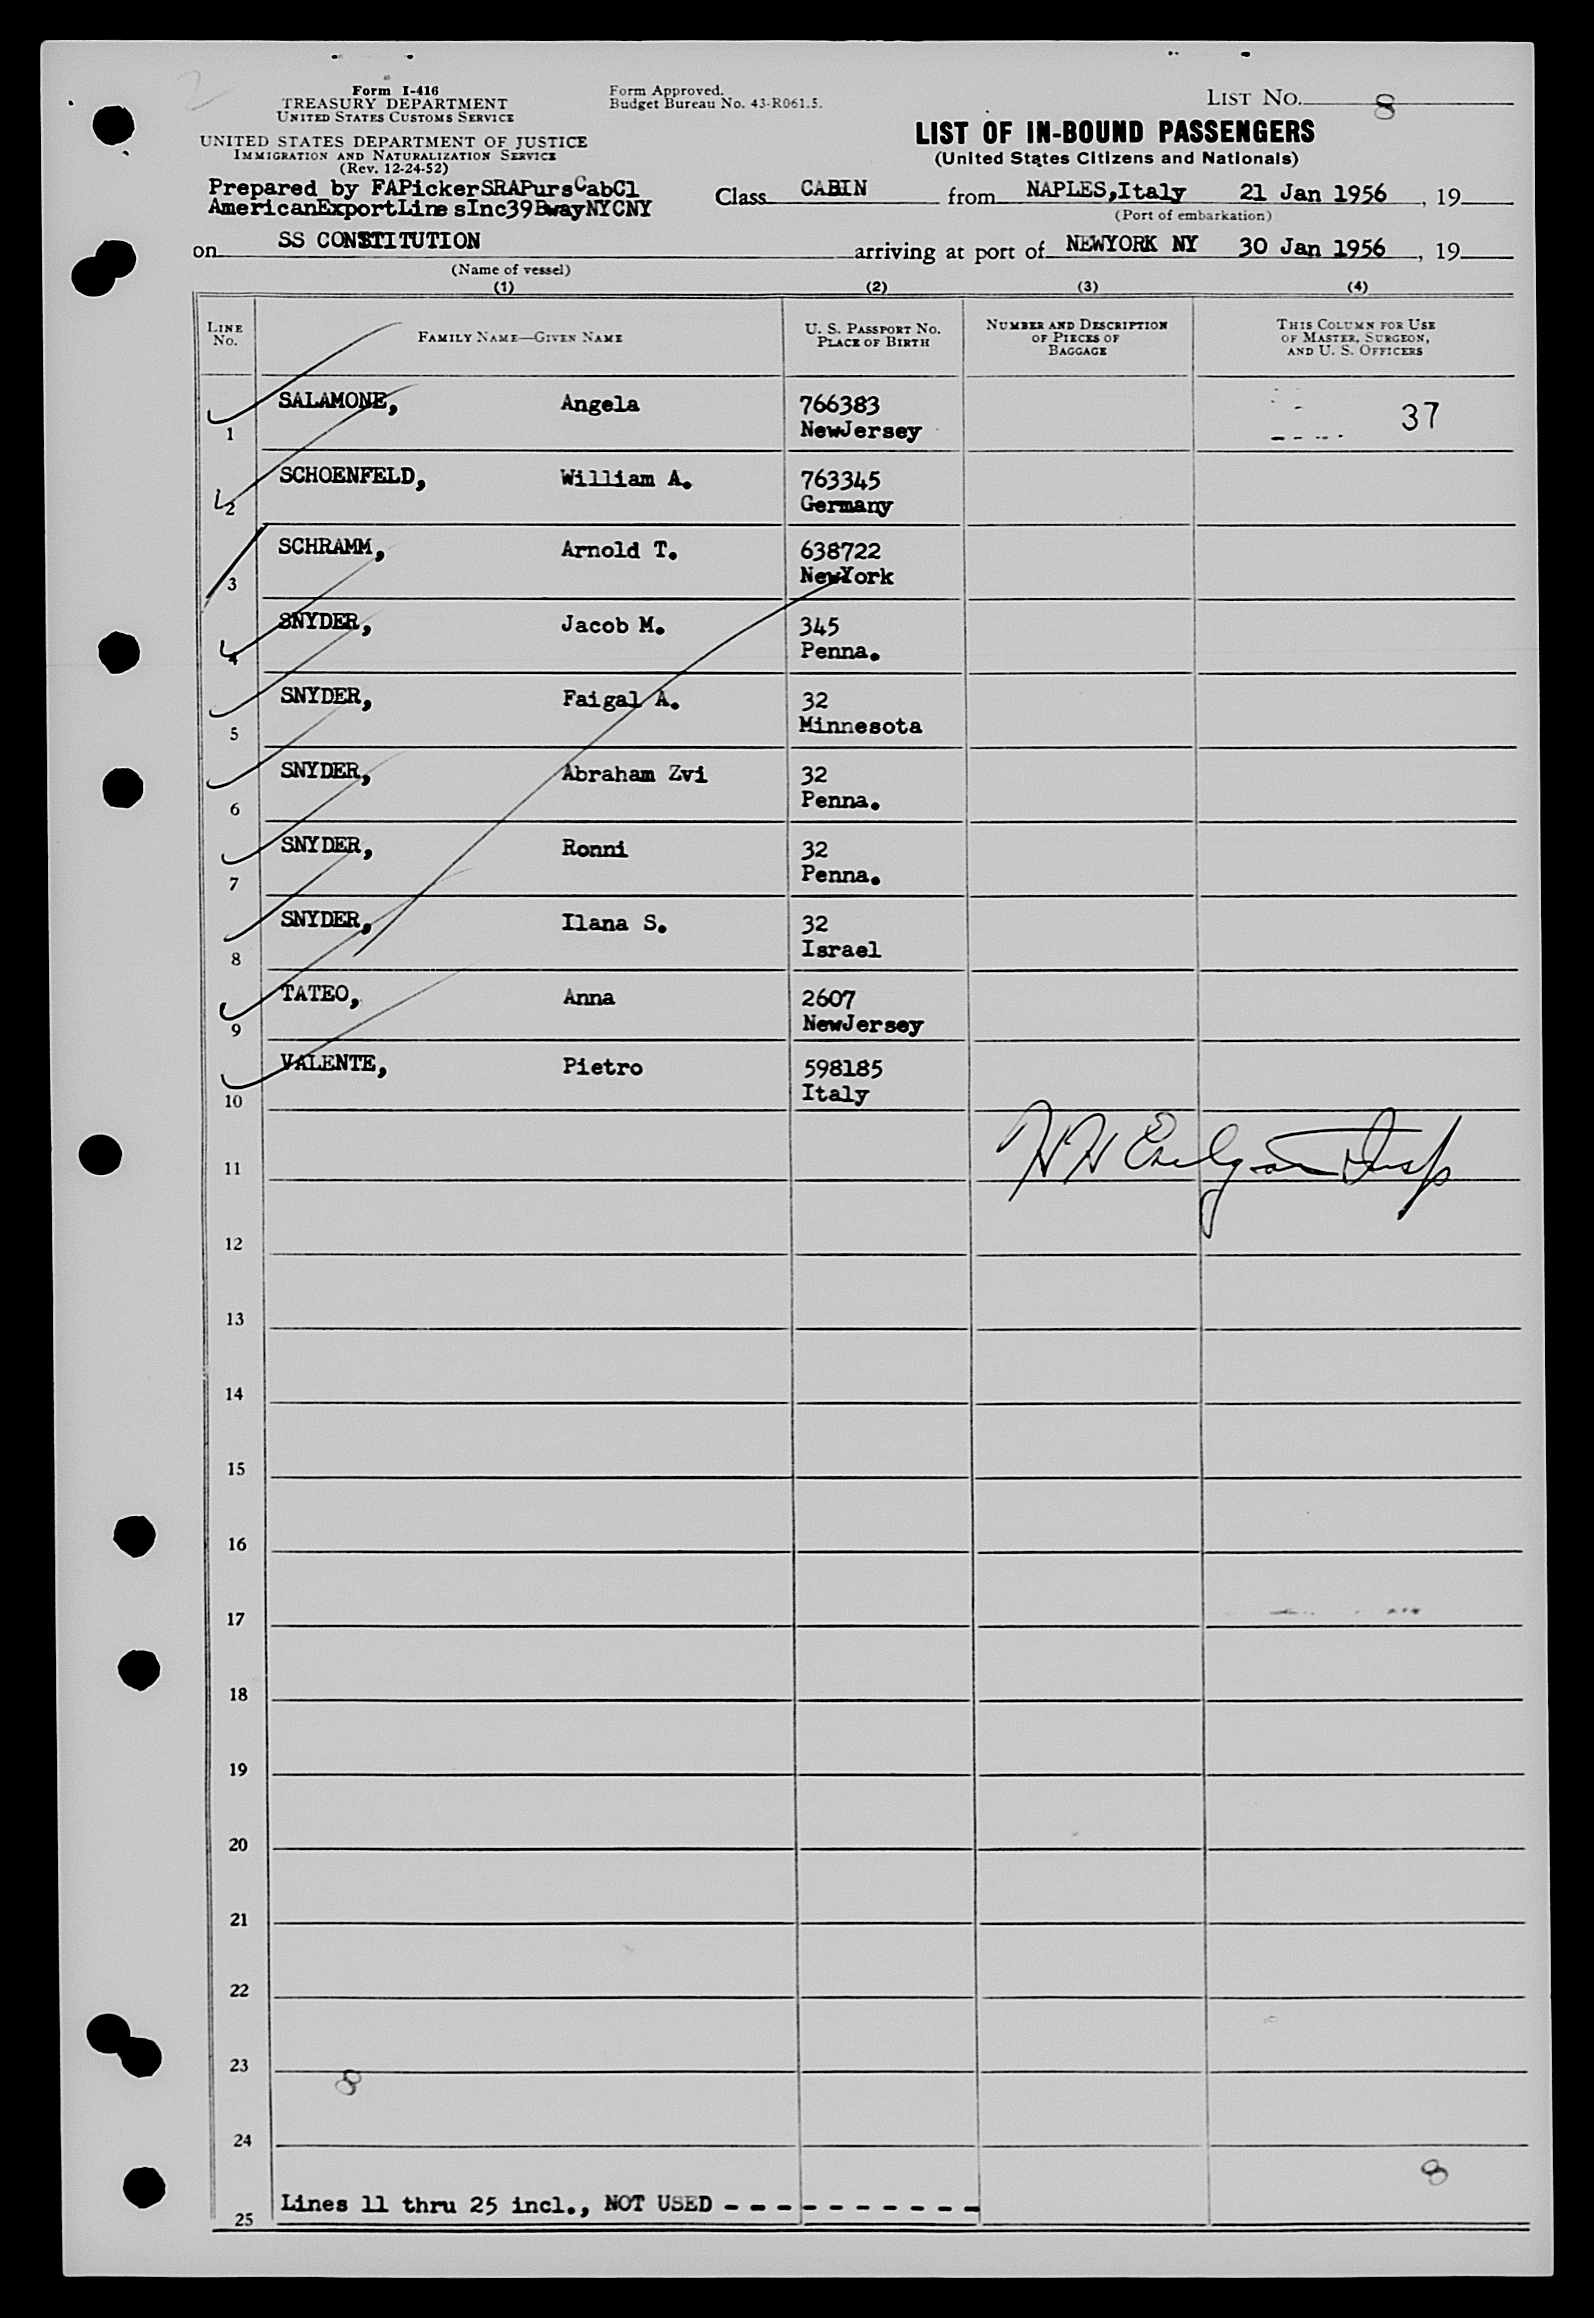 Form I-416
TREASURY DEPARTMENT
UNITED STATES CUSTOMS SERVICE
UNITED STATES DEPARTMENT OF JUSTICE
IMMIGRATION AND NATURALIZATION SERVICE
(Rev. 12-24-52)
Form Approved.
Budget Bureau No. 43-R061.5.
LIST NO. 8
LIST OF IN-BOUND PASSENGERS
(United States Citizens and Nationals)
Prepared by FAPickerSRAPursCabCl
AmericanExportLinesInc39BwayNYCNY
Class CABIN from NAPLES,Italy 21 Jan 1956, 19
(Port of embarkation)
on SS CONSTITUTION arriving at port of NEWYORK NY 30 Jan 1956, 19
(Name of vessel)
(1) (2) (3) (4)
LINE NO. FAMILY NAME—GIVEN NAME U. S. PASSPORT NO. PLACE OF BIRTH NUMBER AND DESCRIPTION OF PIECES OF BAGGAGE THIS COLUMN FOR USE OF MASTER, SURGEON, AND U. S. OFFICERS
1 SALAMONE, Angela 766383 37
NewJersey
2 SCHOENFELD, William A. 763345
Germany
3 SCHRAMM, Arnold T. 638722
NewYork
4 SNYDER, Jacob M. 345
Penna.
5 SNYDER, Faigal A. 32
Minnesota
6 SNYDER, Abraham Zvi 32
Penna.
7 SNYDER, Ronni 32
Penna.
8 SNYDER, Ilana S. 32
Israel
9 TATEO, Anna 2607
NewJersey
10 VALENTE, Pietro 598185
Italy
11
12
13
14
15
16
17
18
19
20
21
22
23
8
24
8
25 Lines 11 thru 25 incl., NOT USED - - - - - - - - - -